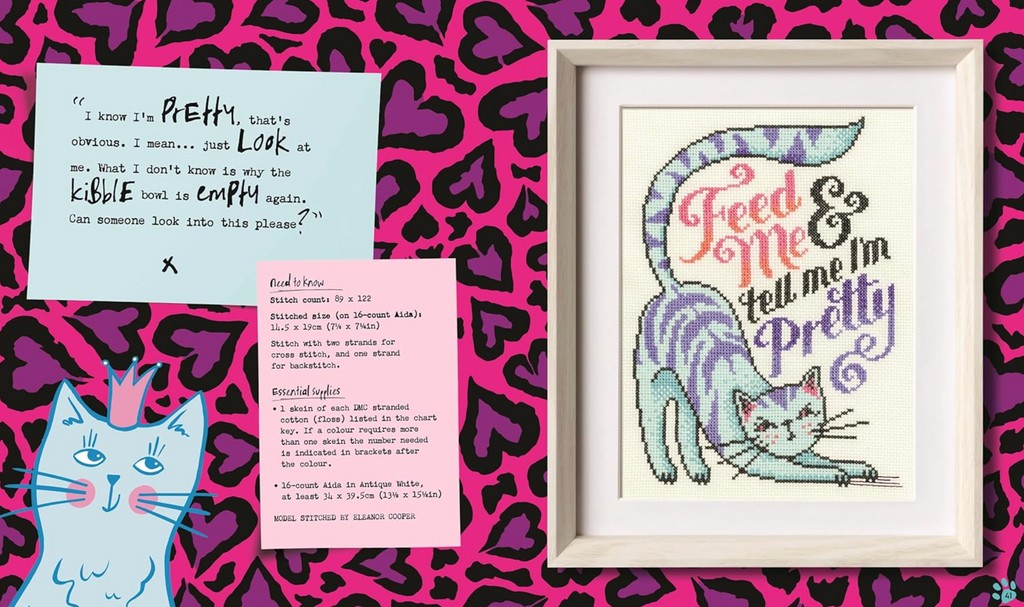 "I know I'm PrEttY, that's
obvious. I mean... just LOOK at
me. What I don't know is why the
KiBBLE bowl is EmPtY again.
Can someone look into this please?"
X
need to know
Stitch count: 89 x 122
Stitched size (on 16-count Aida):
14.5 x 19cm (7⅛ x 7¼in)
Stitch with two strands for
cross stitch, and one strand
for backstitch.
Essential supplies
• 1 skein of each DMC stranded
cotton (floss) listed in the chart
key. If a colour requires more
than one skein the number needed
is indicated in brackets after
the colour.
• 16-count Aida in Antique White,
at least 34 x 39.5cm (13⅜ x 15½in)
MODEL STITCHED BY ELEANOR COOPER
Feed
Me &
tell me I'm
Pretty
41